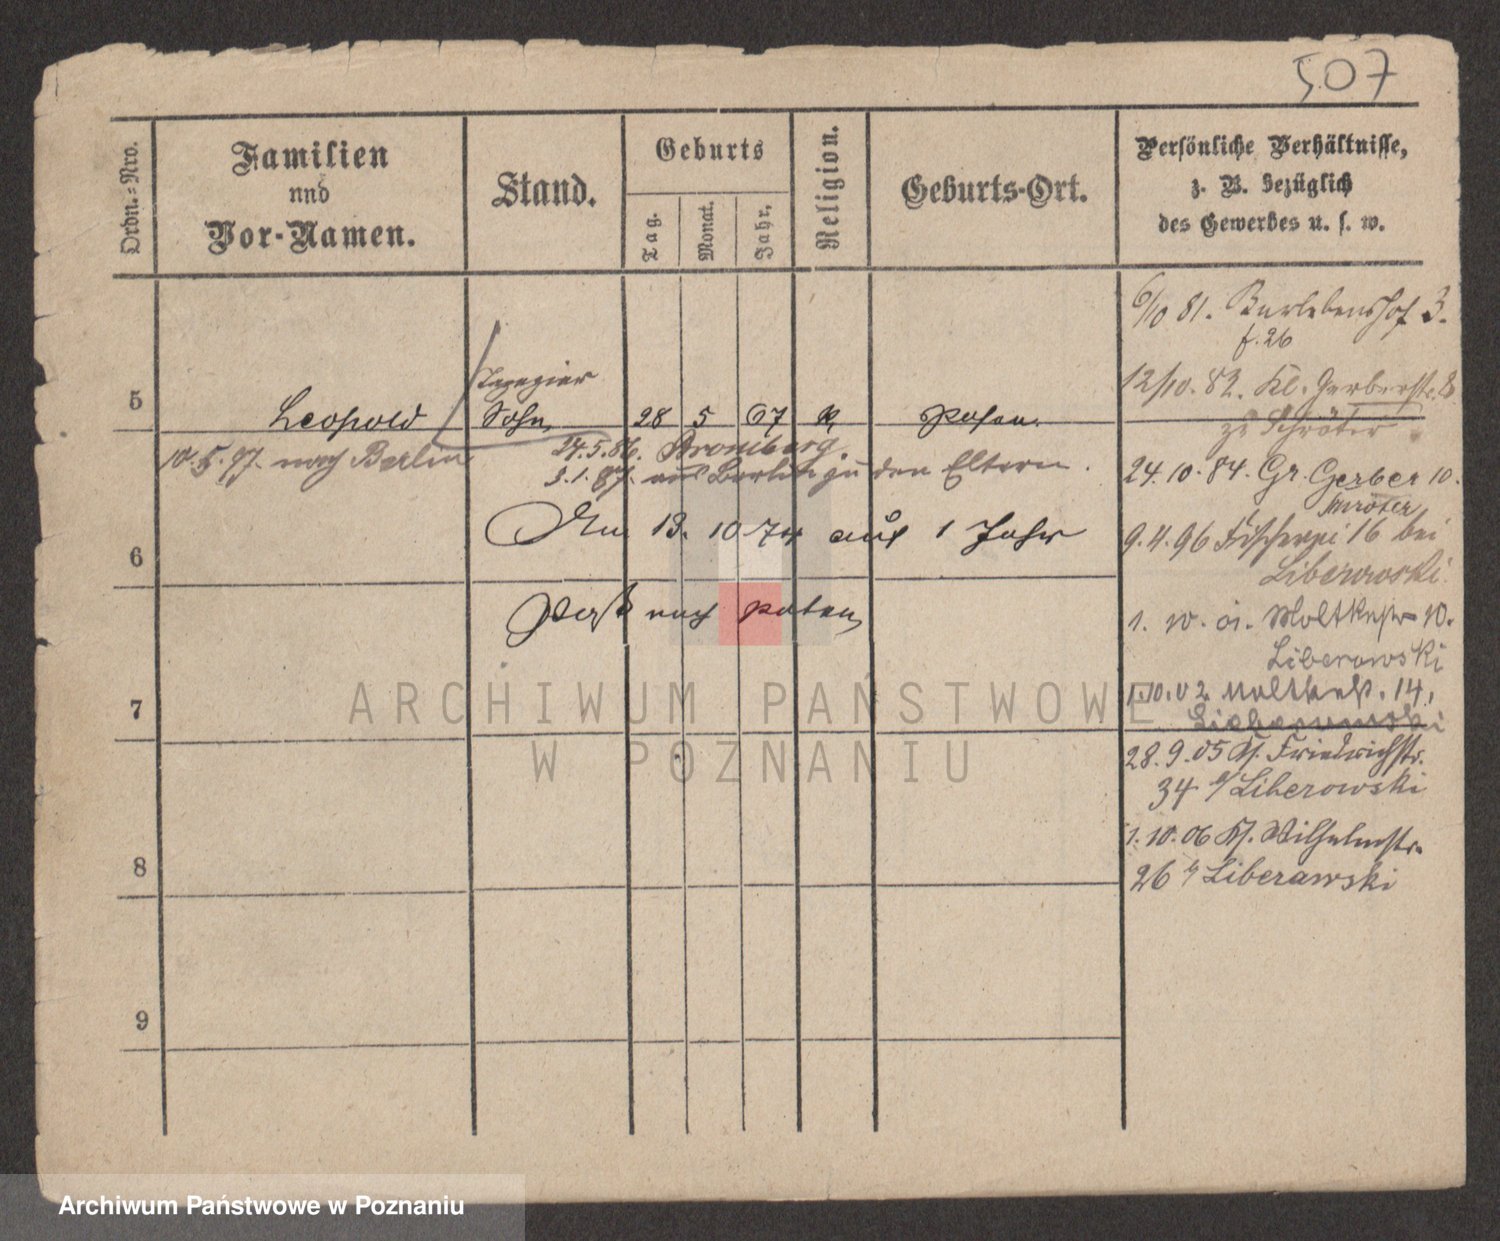 507
Ordn.-Nro.
Familien
und
Vor-Namen.
Stand.
Geburts
Tag.
Monat.
Jahr.
Religion.
Geburts-Ort.
Persönliche Verhältnisse,
z. B. bezüglich
des Gewerbes u. s. w.
6/10 81. Berlebenshof 3.
f. 26
12/10. 82. Kl. Gerberstr. 8
zu Schröter
24. 10. 84. Gr. Gerber 10.
Schröter
9. 4. 96 Fischerei 16 bei
Liberowski
1. 10. 01. Moltkestr 10.
Liberowski
1.10.02 Moltkestr. 14,
Liberowski
28. 9. 05 Kl. Friedrichstr.
34 b/Liberowski
1. 10. 06 Kl. Wilhelmstr.
26 b/Liberawski
5
Leopold
Tapezier
Sohn
28 5 67 k. Posen.
10. 5. 97. nach Berlin
24. 5. 86. Bromberg.
3. 1. 87. aus Berlin zu den Eltern.
6
Am 13. 10 74 auf 1 Jahr
Paß nach Polen
7
8
9
ARCHIWUM PAŃSTWOWE
W POZNANIU
Archiwum Państwowe w Poznaniu